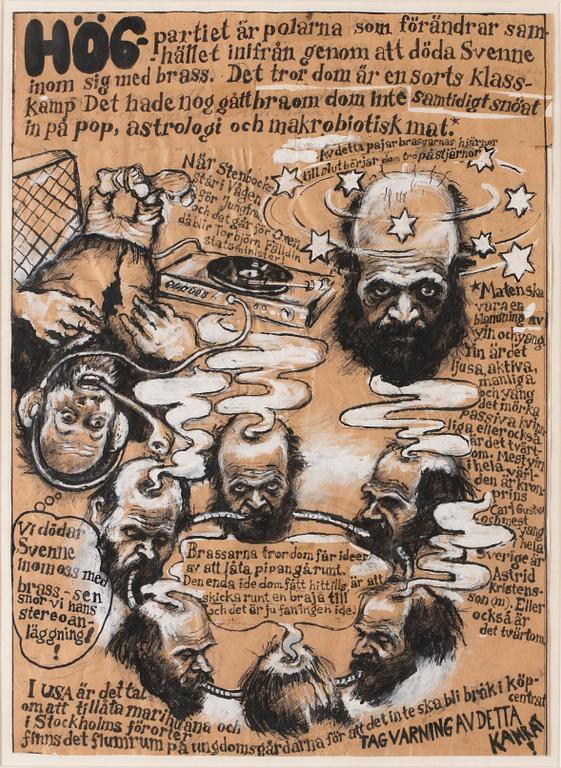 HÖG-partiet är polarna som förändrar sam-
-hället inifrån genom att döda Svenne
inom sig med brass. Det tror dom är en sorts klass-
kamp Det hade nog gått bra om dom inte samtidigt snöat
in på pop, astrologi och makrobiotisk mat.*
Av detta pajar brassarnas hjärnor
till slut börjar dom tro på stjärnor
När Stenbocke
står i Vägen
för Jungfru
och det går för Oxen
då blir Torbjörn Fälldin
statsminister!
*Maten ska
vara en
blandning av
yin och yang
Yin är det
ljusa, aktiva,
manliga
och yang
det mörka
passiva kvinn-
liga eller också
är det tvärt-
om. Mest yin
i hela värl-
den är kron-
prins
Carl Gustaf
och mest
yang i
hela
Sverige är
Astrid
Kristens-
son (m). Eller
också är
det tvärtom.
Vi dödar
Svenne
inom oss med
brass - sen
snor vi hans
stereoan-
läggning!
!
Brassarna tror dom får ideer
av att låta pipan gå runt.
Den enda ide dom fått hittills är att
skicka runt en braja till
och det är ju fan ingen ide.
I USA är det tal
om att tillåta marihuana och
i Stockholms förorter
finns det flumrum på ungdomsgårdarna för att det inte ska bli bråk i köp-
centrat
TAG VARNING AV DETTA
KAMRAT
!